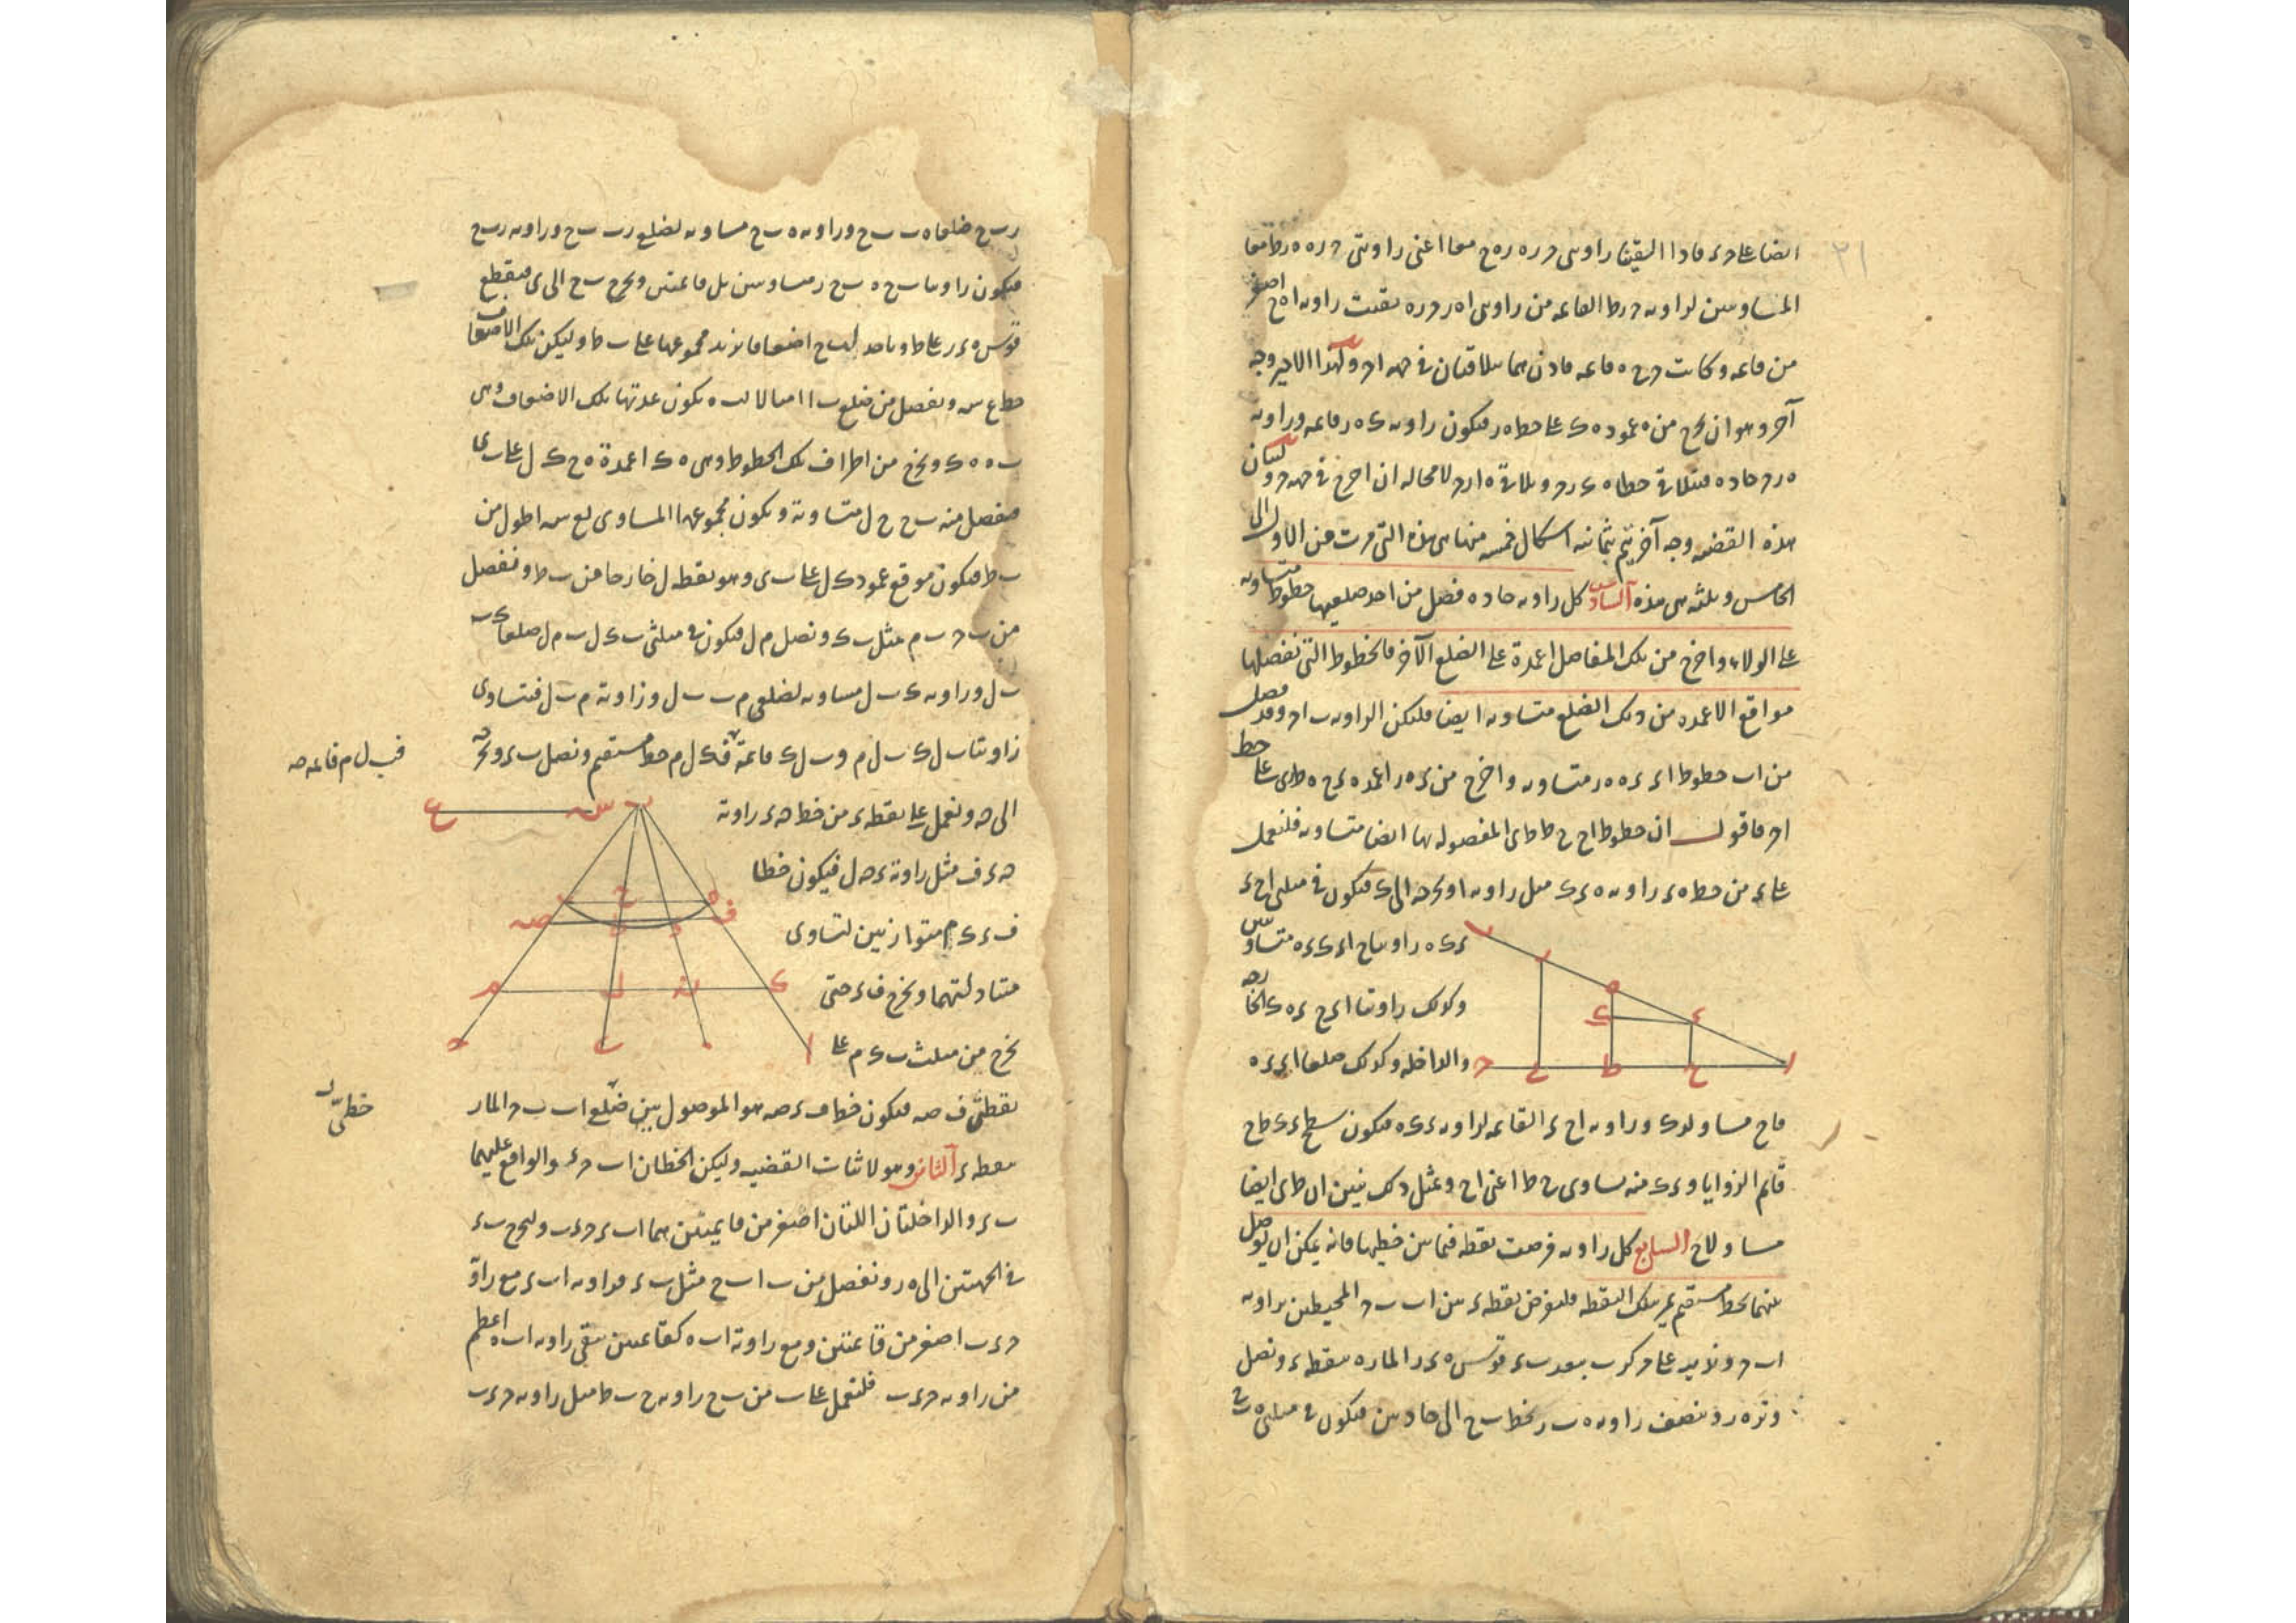 ٣١
ايضا على د ء فاذا القينا زاويتى د ز ه ز ه ح معا اعنى زاويتى د ز ه ه ز ط معا
المتساويتين لزاوية د ز ط القائمة من زاويتى ا ه ز د ز ه بقيت زاوية ا ه ح اصغر
من قائمة وكانت د ح ه قائمة فاذن هما يتلاقيان فى جهة ا د ولهذا الاخير وجه
آخر وهو ان نخرج من ه عمود ه ك على خط ه ز فيكون زاوية ك ه ز قائمة وزاوية
ه ز د حادة فيتلاقى خطا ه ك ز د ويلاقى ه ا ز د لا محالة ان اخرج فى جهة د ولبيان
هذه القضية وجه آخر يتم بثمانية اشكال خمسة منها هى هذه التى مرت من الاول الى
الخامس وثلثة هى هذه السادس كل زاوية حادة فصل من احد ضلعيها خطوط متساوية
على الولاء واخرج من تلك المفاصل اعمدة على الضلع الآخر فالخطوط التى تفصلها
مواقع الاعمدة من ذلك الضلع متساوية ايضا فليكن الزاوية ب ا د وقد فصل
من اب خطوط ا ء ء ه ه ز متساوية واخرج من ء ه ز اعمدة ء ح ه ط ز ى على خط
ا د فاقول ان خطوط ا ح ح ط ط ى المفصولة بها ايضا متساوية فلنعمل
على ء من خط ه ء زاوية ه ء ك مثل زاوية ا ونخرجه الى ك فيكون فى مثلثى ا ح ء
ء ك ه زاويتا ح ا ء ك ء ه متساويتين
وكذلك زاويتا ا ء ح ء ه ك الخارجة
والداخلة وكذلك ضلعا ا ء ء ه
فا ح مساو لء ك وزاوية ا ح ء القائمة لزاوية ء ك ه فيكون سطح ء ك ط ح
قائم الزوايا و ء ك منه يساوى ح ط اعنى ا ح وبمثل ذلك نبين ان ط ى ايضا
مساو لا ح السابع كل زاوية فرضت نقطة فيما بين خطيها فانه يمكن ان يوصل
بينهما بخط مستقيم يمر بتلك النقطة فلنفرض نقطة ء بين ا ب ب د المحيطين بزاوية
ا ب د وندير على مركز ب ببعد ب ء قوس ه ء ز المارة بنقطة ء ونصل
وتر ه ز وننصف زاوية ه ب ز بخط ب ح الى حادتين فيكون فى مثلثى ه ب ح
ز ب ح ضلعا ه ب ب ح وزاوية ه ب ح مساوية لضلعى ز ب ب ح وزاوية ز ب ح
فيكون زاويتا ب ح ه ب ح ز متساويتين بل قائمتين ونخرج ب ح الى ى فيقطع
قوس ه ء ز على ط وناخذ لب ح اضعافا يزيد مجموعها على ب ط وليكن تلك الاضعاف
خط ع س ونفصل من ضلع ب ا امثالا لب ه يكون عدتها تلك الاضعاف وهى
ب ه ه ك ونخرج من اطراف تلك الخطوط وهى ه ك اعمدة ه ح ك ل على ب ى
فيفصل منه ب ح ح ل متساوية ويكون مجموعها المساوى لع س اطول من
ب ط فيكون موقع عمود ك ل على ب ى وهو نقطة ل خارجا من ب ط ونفصل
من ب د ب م مثل ب ك ونصل م ل فيكون فى مثلثى ب ك ل ب م ل ضلعا ك ب
ب ل وزاوية ك ب ل مساوية لضلعى م ب ب ل وزاوية م ب ل فتساوى
زاويتا ب ل ك ب ل م و ب ل ك قائمة فك ل م خط مستقيم ونصل ب ء ونخرجه
فب ل م قائمة صه
الى ن ونعمل على نقطة ء من خط ن ء زاوية
ن ء ف مثل زاوية ء ن ل فيكون خطا
ف ء ك م متوازيين لتساوى
متبادلتهما ونخرج ف ء حتى
يخرج من مثلث ب ك م على
نقطتى ف صه فيكون خط ف ء صه هو الموصول بين ضلعى ا ب ب د المار
خطى
بنقطة ء الثامن وهو لاثبات القضية وليكن الخطان ا ب د ء والواقع عليهما
ب ء والداخلتان اللتان اصغر من قائمتين هما ا ب ء د ء ب ولنخرج ب ء
فى الجهتين الى ه ز ونفصل من ب ا ب ح مثل ب ء فزاوية ا ب ء مع زاوية
د ء ب اصغر من قائمتين ومع زاوية ا ب ه كقائمتين يبقى زاوية ا ب ه اعظم
من زاوية د ء ب فلنعمل على ب من ب ح زاوية ح ب ط مثل زاوية د ء ب